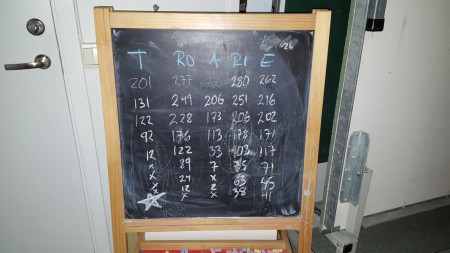 T RO A RI E
201 277 280 262
131 249 206 251 216
122 228 173 206 202
92 176 113 178 171
12 122 33 103 117
x 89 7 85 71
x 24 x 63 45
x 12 2 38 41
x x